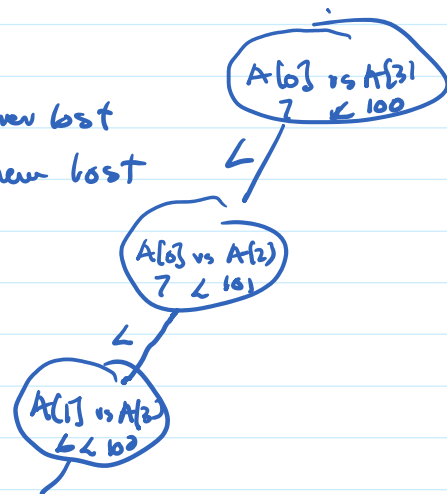 A[0] vs A[3]
7 < 100
ver lost
<
new lost
A[0] vs A[2]
7 < 101
<
A[1] vs A[3]
6 < 100